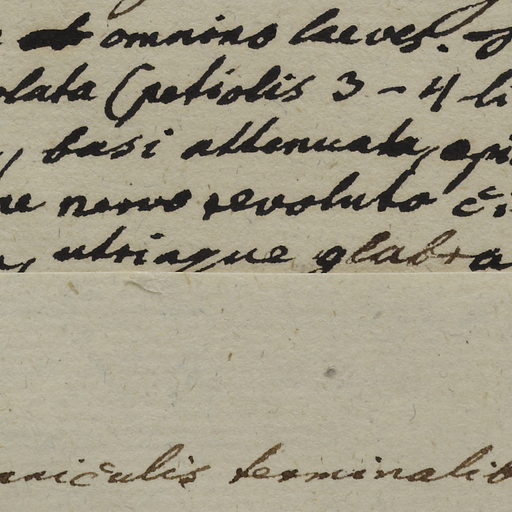 omnino laeves.
olata (petiolis 3 - 4 li
basi attenuata, epi
ne nervo revoluto ci
utrinque glabra
aniculis terminalib